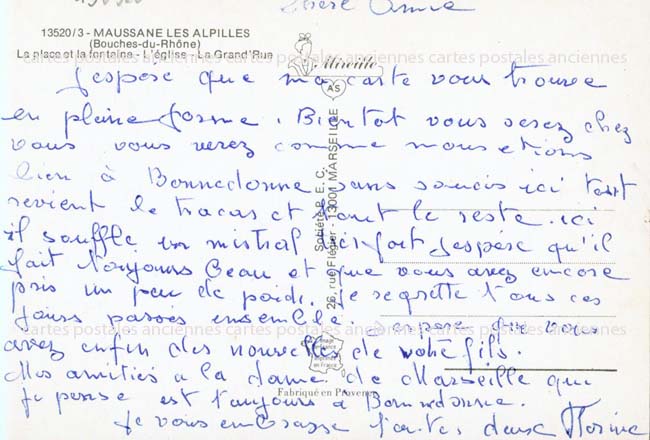 Chère Amie
13520/3 - MAUSSANE LES ALPILLES
(Bouches-du-Rhône)
La place et la fontaine - L'église - La Grand'Rue
Mireille
AS
cartes postales anciennes cartes postales anciennes cartes postales anciennes
J'espère que ma carte vous trouve
en pleine forme. Bientot vous serez chez
vous vous verez comme nous etions
bien à Bonnedonne sans soucis ici tout
revient le tracas et tout le reste. ici
il souffle un mistral très fort j'espère qu'il
fait toujours Beau et que vous avez encore
pris un peu de poids. Je regrette tous ces
jours passés ensemble. J'espere que vous
avez enfin des nouvelles de votre fils.
Mes amitiés a la dame de Marseille qui
je pense est toujours à Bonnedonne.
Je vous embrasse
Société P.E.C.
26, rue Flégier - 13001 MARSEILLE
cartes postales anciennes cartes postales anciennes cartes postales anciennes
imprimée
en France
Fabriqué en Provence